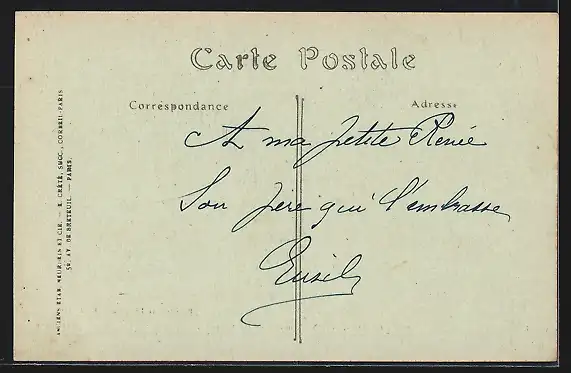 Carte Postale
Correspondance
Adresse
A ma petite Renée
Son père qui l'embrasse
ANCIENS ETAB. NEURDEIN ET CIE. — E. CRÉTÉ, SUCC., CORBEIL-PARIS
52, AV. DE BRETEUIL. — PARIS.